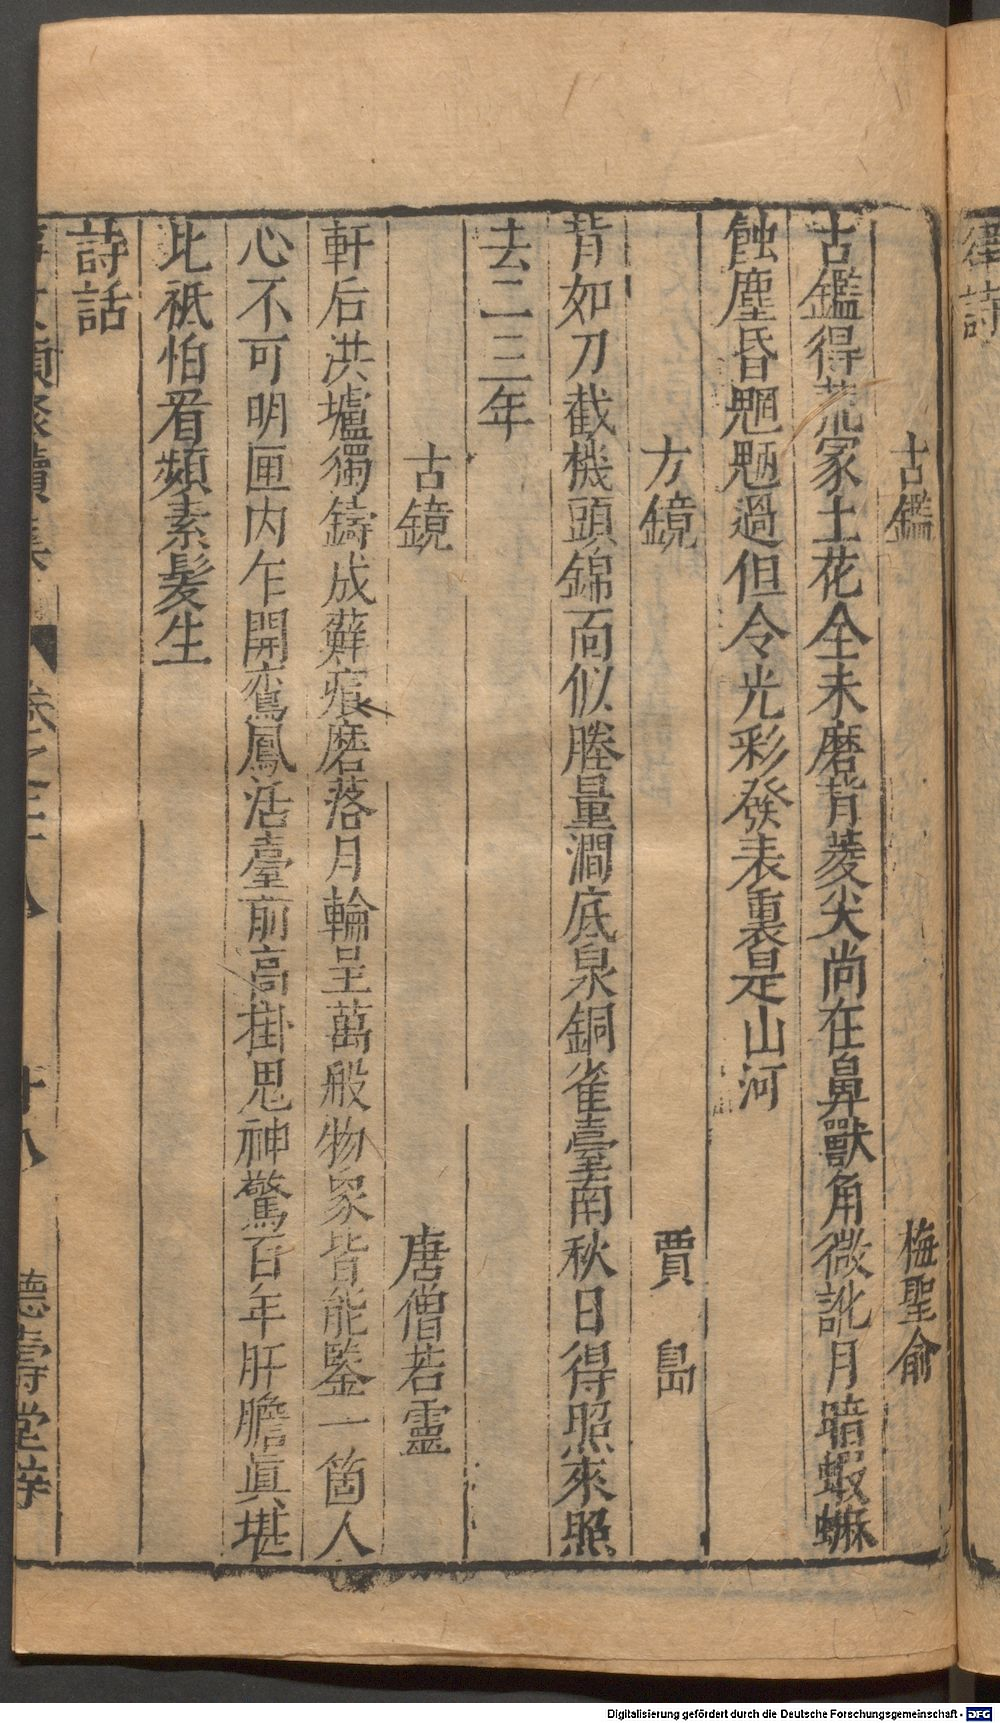 律詩
古鑑　梅聖俞
古鑑得荒冢土花全未磨背菱尖尚在鼻獸角微訛月暗蝦蟆
蝕塵昏魍魎過但令光彩發表裏是山河
方鏡　賈島
背如刀截機頭錦面似𦫼量澗底泉銅雀臺南秋日得照來照
去二三年
古鏡　唐僧若靈
軒后洪爐獨鑄成蘚痕磨落月輪呈萬般物象皆能鑒一箇人
心不可明匣內乍開鸞鳳活臺前高掛鬼神驚百年肝膽眞堪
比祇怕看頻素髮生
詩話
事文類聚續集　卷之二十八　十八　德壽堂梓
Digitalisierung gefördert durch die Deutsche Forschungsgemeinschaft - DFG